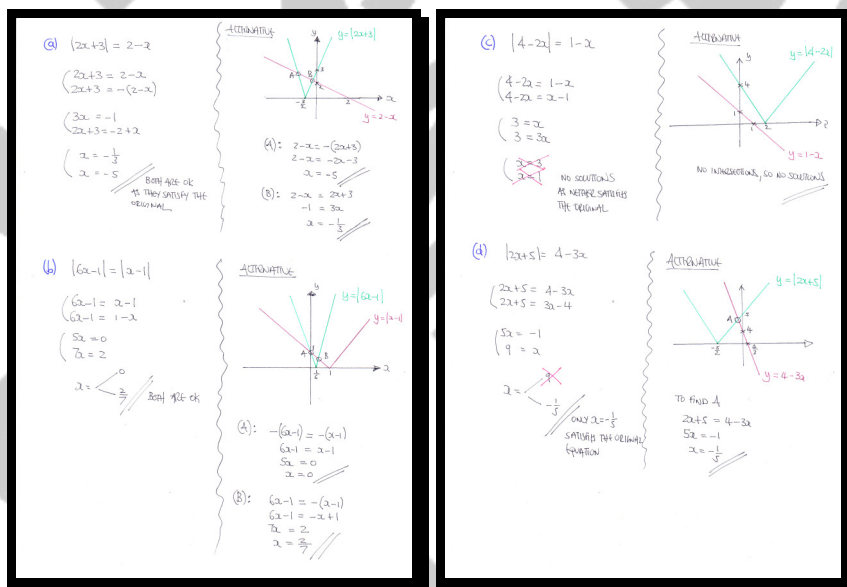 (a) |2x+3| = 2-x
2x+3 = 2-x
2x+3 = -(2-x)
3x = -1
2x+3 = -2+x
x = -1/3
x = -5
BOTH ARE OK
AS THEY SATISFY THE
ORIGINAL
ALTERNATIVE
y
y=|2x+3|
A
B
3
2
-3/2
2
x
y=2-x
(A): 2-x = -(2x+3)
2-x = -2x-3
x = -5
(B): 2-x = 2x+3
-1 = 3x
x = -1/3
(b) |6x-1| = |x-1|
6x-1 = x-1
6x-1 = 1-x
5x = 0
7x = 2
x = 0
2/7
BOTH ARE OK
ALTERNATIVE
y
y=|6x-1|
y=|x-1|
A
1
B
1/6
1
x
(A): -(6x-1) = -(x-1)
6x-1 = x-1
5x = 0
x = 0
(B): 6x-1 = -(x-1)
6x-1 = -x+1
7x = 2
x = 2/7
(c) |4-2x| = 1-x
4-2x = 1-x
4-2x = x-1
3 = x
3 = 3x
x = 3
x = 1
NO SOLUTIONS
AS NEITHER SATISFIES
THE ORIGINAL
ALTERNATIVE
y
y=|4-2x|
4
1
1
2
x
y=1-x
NO INTERSECTIONS, SO NO SOLUTIONS
(d) |2x+5| = 4-3x
2x+5 = 4-3x
2x+5 = 3x-4
5x = -1
9 = x
x = 9
-1/5
ONLY x=-1/5
SATISFIES THE ORIGINAL
EQUATION
ALTERNATIVE
y=|2x+5|
A
5
4
-5/2
4/3
y=4-3x
TO FIND A
2x+5 = 4-3x
5x = -1
x = -1/5